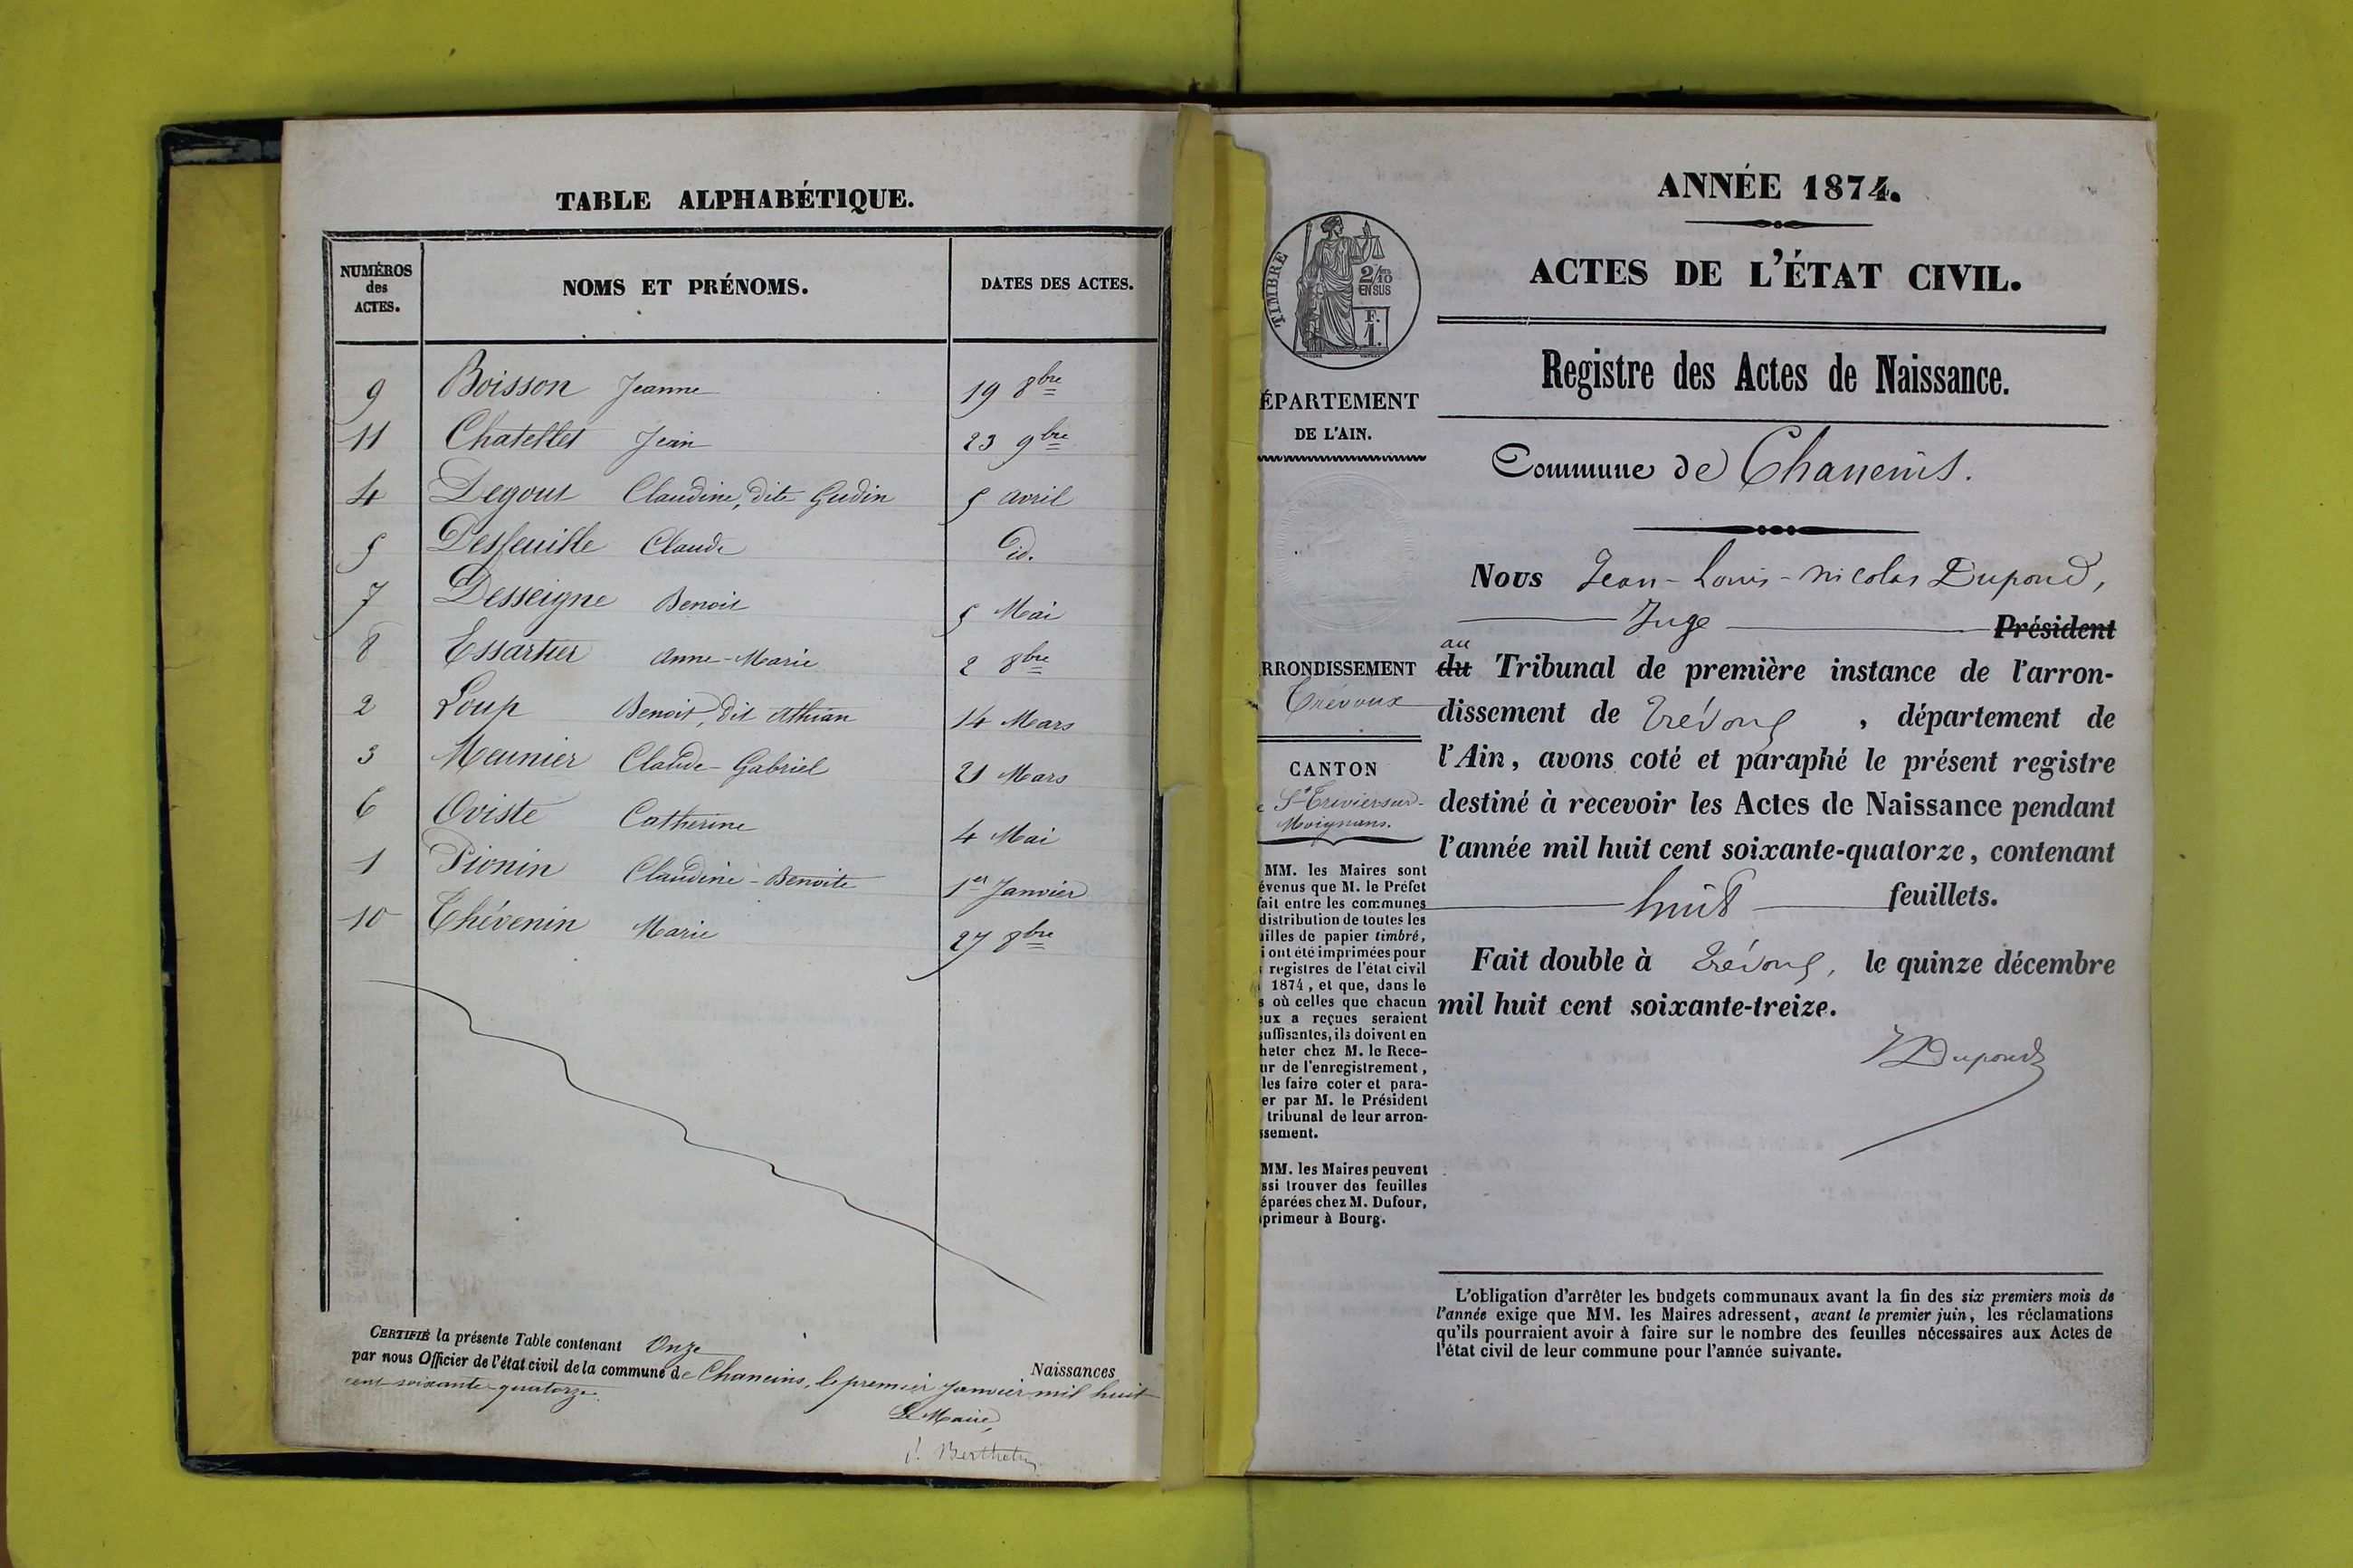 TABLE ALPHABÉTIQUE.
NUMÉROS
des
ACTES.
NOMS ET PRÉNOMS.
DATES DES ACTES.
9 Boisson Jeanne 19 8bre
11 Chatellet Jean 23 9bre
4 Degout Claudine, dite Gudin 5 avril
5 Desfeuille Claude id.
7 Desseigne Benoit 5 Mai
8 Essartier Anne-Marie 2 8bre
2 Loup Benoit, dit Athian 14 Mars
3 Meunier Claude-Gabriel 21 Mars
6 Oviste Catherine 4 Mai
1 Pionin Claudine-Benoite 1er Janvier
10 Thévenin Marie 27 8bre
CERTIFIÉ la présente Table contenant Onze Naissances
par nous Officier de l'état civil de la commune de Chaneins, le premier Janvier mil huit
cent soixante-quatorze.
Le Maire,
Berthet
ANNÉE 1874.
ACTES DE L'ÉTAT CIVIL.
Registre des Actes de Naissance.
Commune de Chaneins.
Nous Jean-Louis-Nicolas Dupond,
Juge Président
au
du Tribunal de première instance de l'arron-
dissement de Trévoux, département de
l'Ain, avons coté et paraphé le présent registre
destiné à recevoir les Actes de Naissance pendant
l'année mil huit cent soixante-quatorze, contenant
huit feuillets.
Fait double à Trévoux, le quinze décembre
mil huit cent soixante-treize.
Dupond
L'obligation d'arrêter les budgets communaux avant la fin des six premiers mois de
l'année exige que MM. les Maires adressent, avant le premier juin, les réclamations
qu'ils pourraient avoir à faire sur le nombre des feuilles nécessaires aux Actes de
l'état civil de leur commune pour l'année suivante.
TIMBRE
2/10
EN SUS
F.
1.
ÉPARTEMENT
DE L'AIN.
RRONDISSEMENT
Trévoux
CANTON
St Trivier sur-
Moignans.
MM. les Maires sont
évenus que M. le Préfet
fait entre les communes
distribution de toutes les
uilles de papier timbré,
i ont été imprimées pour
registres de l'état civil
1874, et que, dans le
s où celles que chacun
eux a reçues seraient
suffisantes, ils doivent en
heter chez M. le Rece-
ur de l'enregistrement,
les faire coter et para-
er par M. le Président
tribunal de leur arron-
ssement.
MM. les Maires peuvent
ssi trouver des feuilles
éparées chez M. Dufour,
primeur à Bourg.